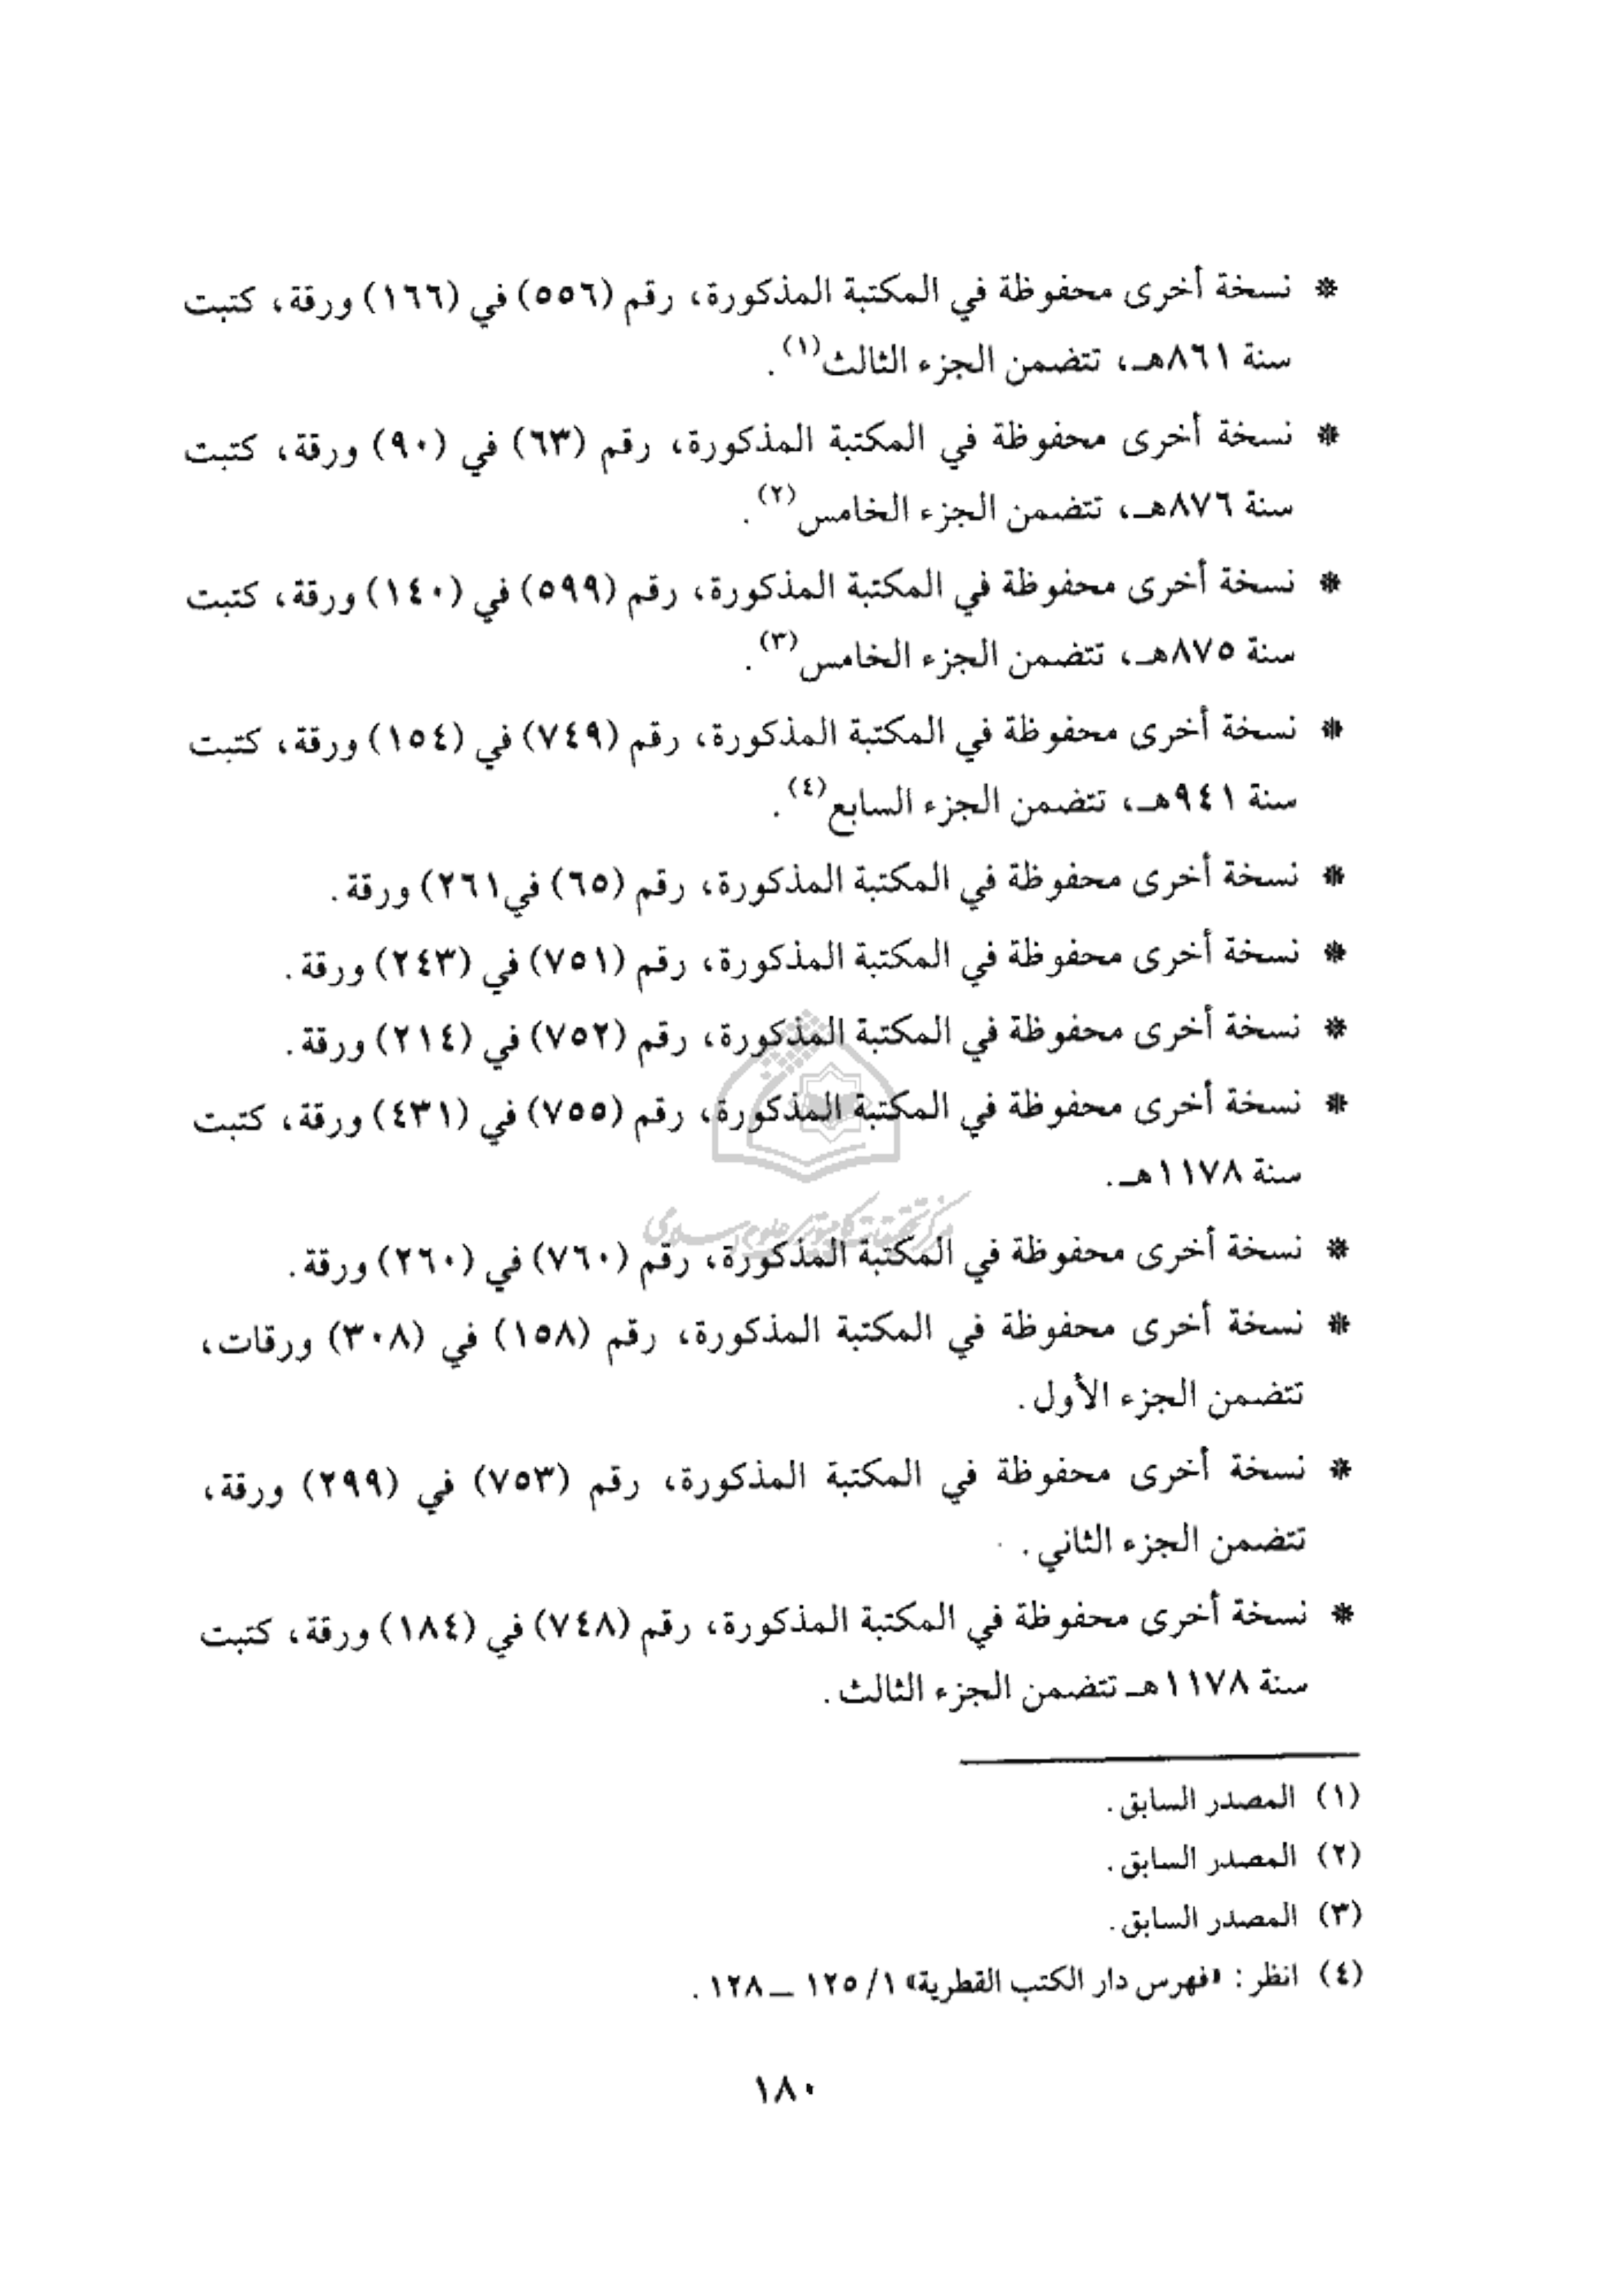 * نسخة أخرى محفوظة في المكتبة المذكورة، رقم (٥٥٦) في (١٦٦) ورقة، كتبت
سنة ٨٦١هـ، تتضمن الجزء الثالث(١).
* نسخة أخرى محفوظة في المكتبة المذكورة، رقم (٦٣) في (٩٠) ورقة، كتبت
سنة ٨٧٦هـ، تتضمن الجزء الخامس(٢).
* نسخة أخرى محفوظة في المكتبة المذكورة، رقم (٥٩٩) في (١٤٠) ورقة، كتبت
سنة ٨٧٥هـ، تتضمن الجزء الخامس(٣).
* نسخة أخرى محفوظة في المكتبة المذكورة، رقم (٧٤٩) في (١٥٤) ورقة، كتبت
سنة ٩٤١هـ، تتضمن الجزء السابع(٤).
* نسخة أخرى محفوظة في المكتبة المذكورة، رقم (٦٥) في٢٦١) ورقة.
* نسخة أخرى محفوظة في المكتبة المذكورة، رقم (٧٥١) في (٢٤٣) ورقة.
* نسخة أخرى محفوظة في المكتبة المذكورة، رقم (٧٥٢) في (٢١٤) ورقة.
* نسخة أخرى محفوظة في المكتبة المذكورة، رقم (٧٥٥) في (٤٣١) ورقة، كتبت
سنة ١١٧٨هـ.
مرکز تحقیقات کامپیوتری علوم اسلامی
* نسخة أخرى محفوظة في المكتبة المذكورة، رقم (٧٦٠) في (٢٦٠) ورقة.
* نسخة أخرى محفوظة في المكتبة المذكورة، رقم (١٥٨) في (٣٠٨) ورقات،
تتضمن الجزء الأول.
* نسخة أخرى محفوظة في المكتبة المذكورة، رقم (٧٥٣) في (٢٩٩) ورقة،
تتضمن الجزء الثاني.
* نسخة أخرى محفوظة في المكتبة المذكورة، رقم (٧٤٨) في (١٨٤) ورقة، كتبت
سنة ١١٧٨هـ تتضمن الجزء الثالث.
(١) المصدر السابق.
(٢) المصدر السابق.
(٣) المصدر السابق.
(٤) انظر: «فهرس دار الكتب القطرية» ١/ ١٢٥ ــ ١٢٨.
١٨٠